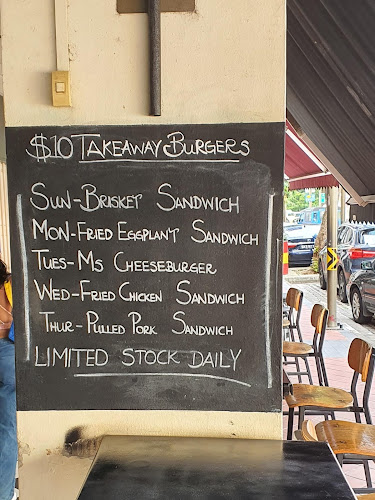 $10 TAKEAWAY BURGERS
SUN-BRISKET SANDWICH
MON-FRIED EGGPLANT SANDWICH
TUES-MS CHEESEBURGER
WED-FRIED CHICKEN SANDWICH
THUR-PULLED PORK SANDWICH
LIMITED STOCK DAILY